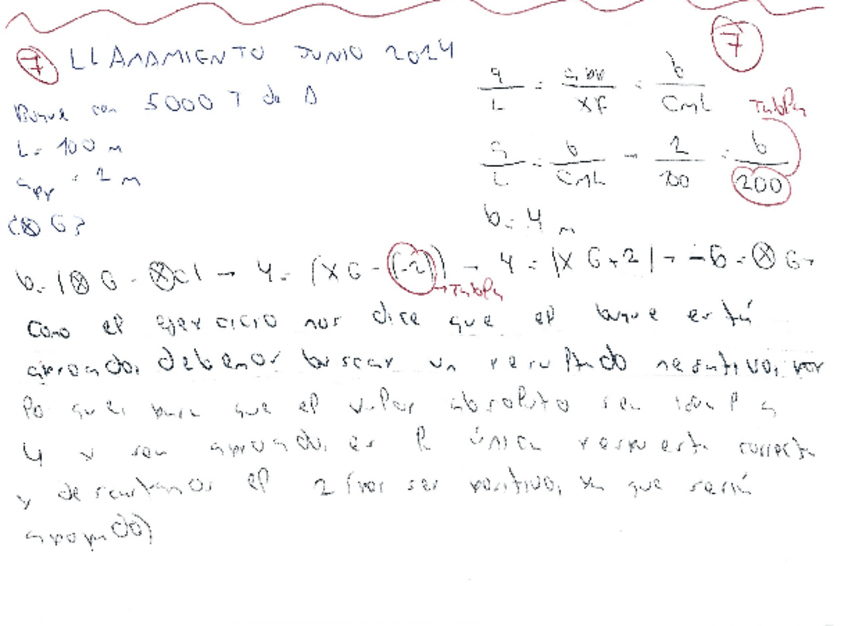 7 LLAMAMIENTO JUNIO 2024
7
Buque con 5000 T de Δ
L = 100 m
apr = 2 m
¿⊗G?
a/L = apr/XF = b/CML
TABLA
a/L = b/CML → 2/100 = b/200
b = 4 m
b = |⊗G - ⊗C| → 4 = |XG - (-2)| → 4 = |XG + 2| → -6 = ⊗G
→ TABLA
Como el ejercicio nos dice que el buque está
aproado, debemos buscar un resultado negativo, por
lo que, para que el valor absoluto sea igual a
4 y sea aproado, es la única respuesta correcta
y descartamos el 2 (por ser positivo, ya que sería
apopado)